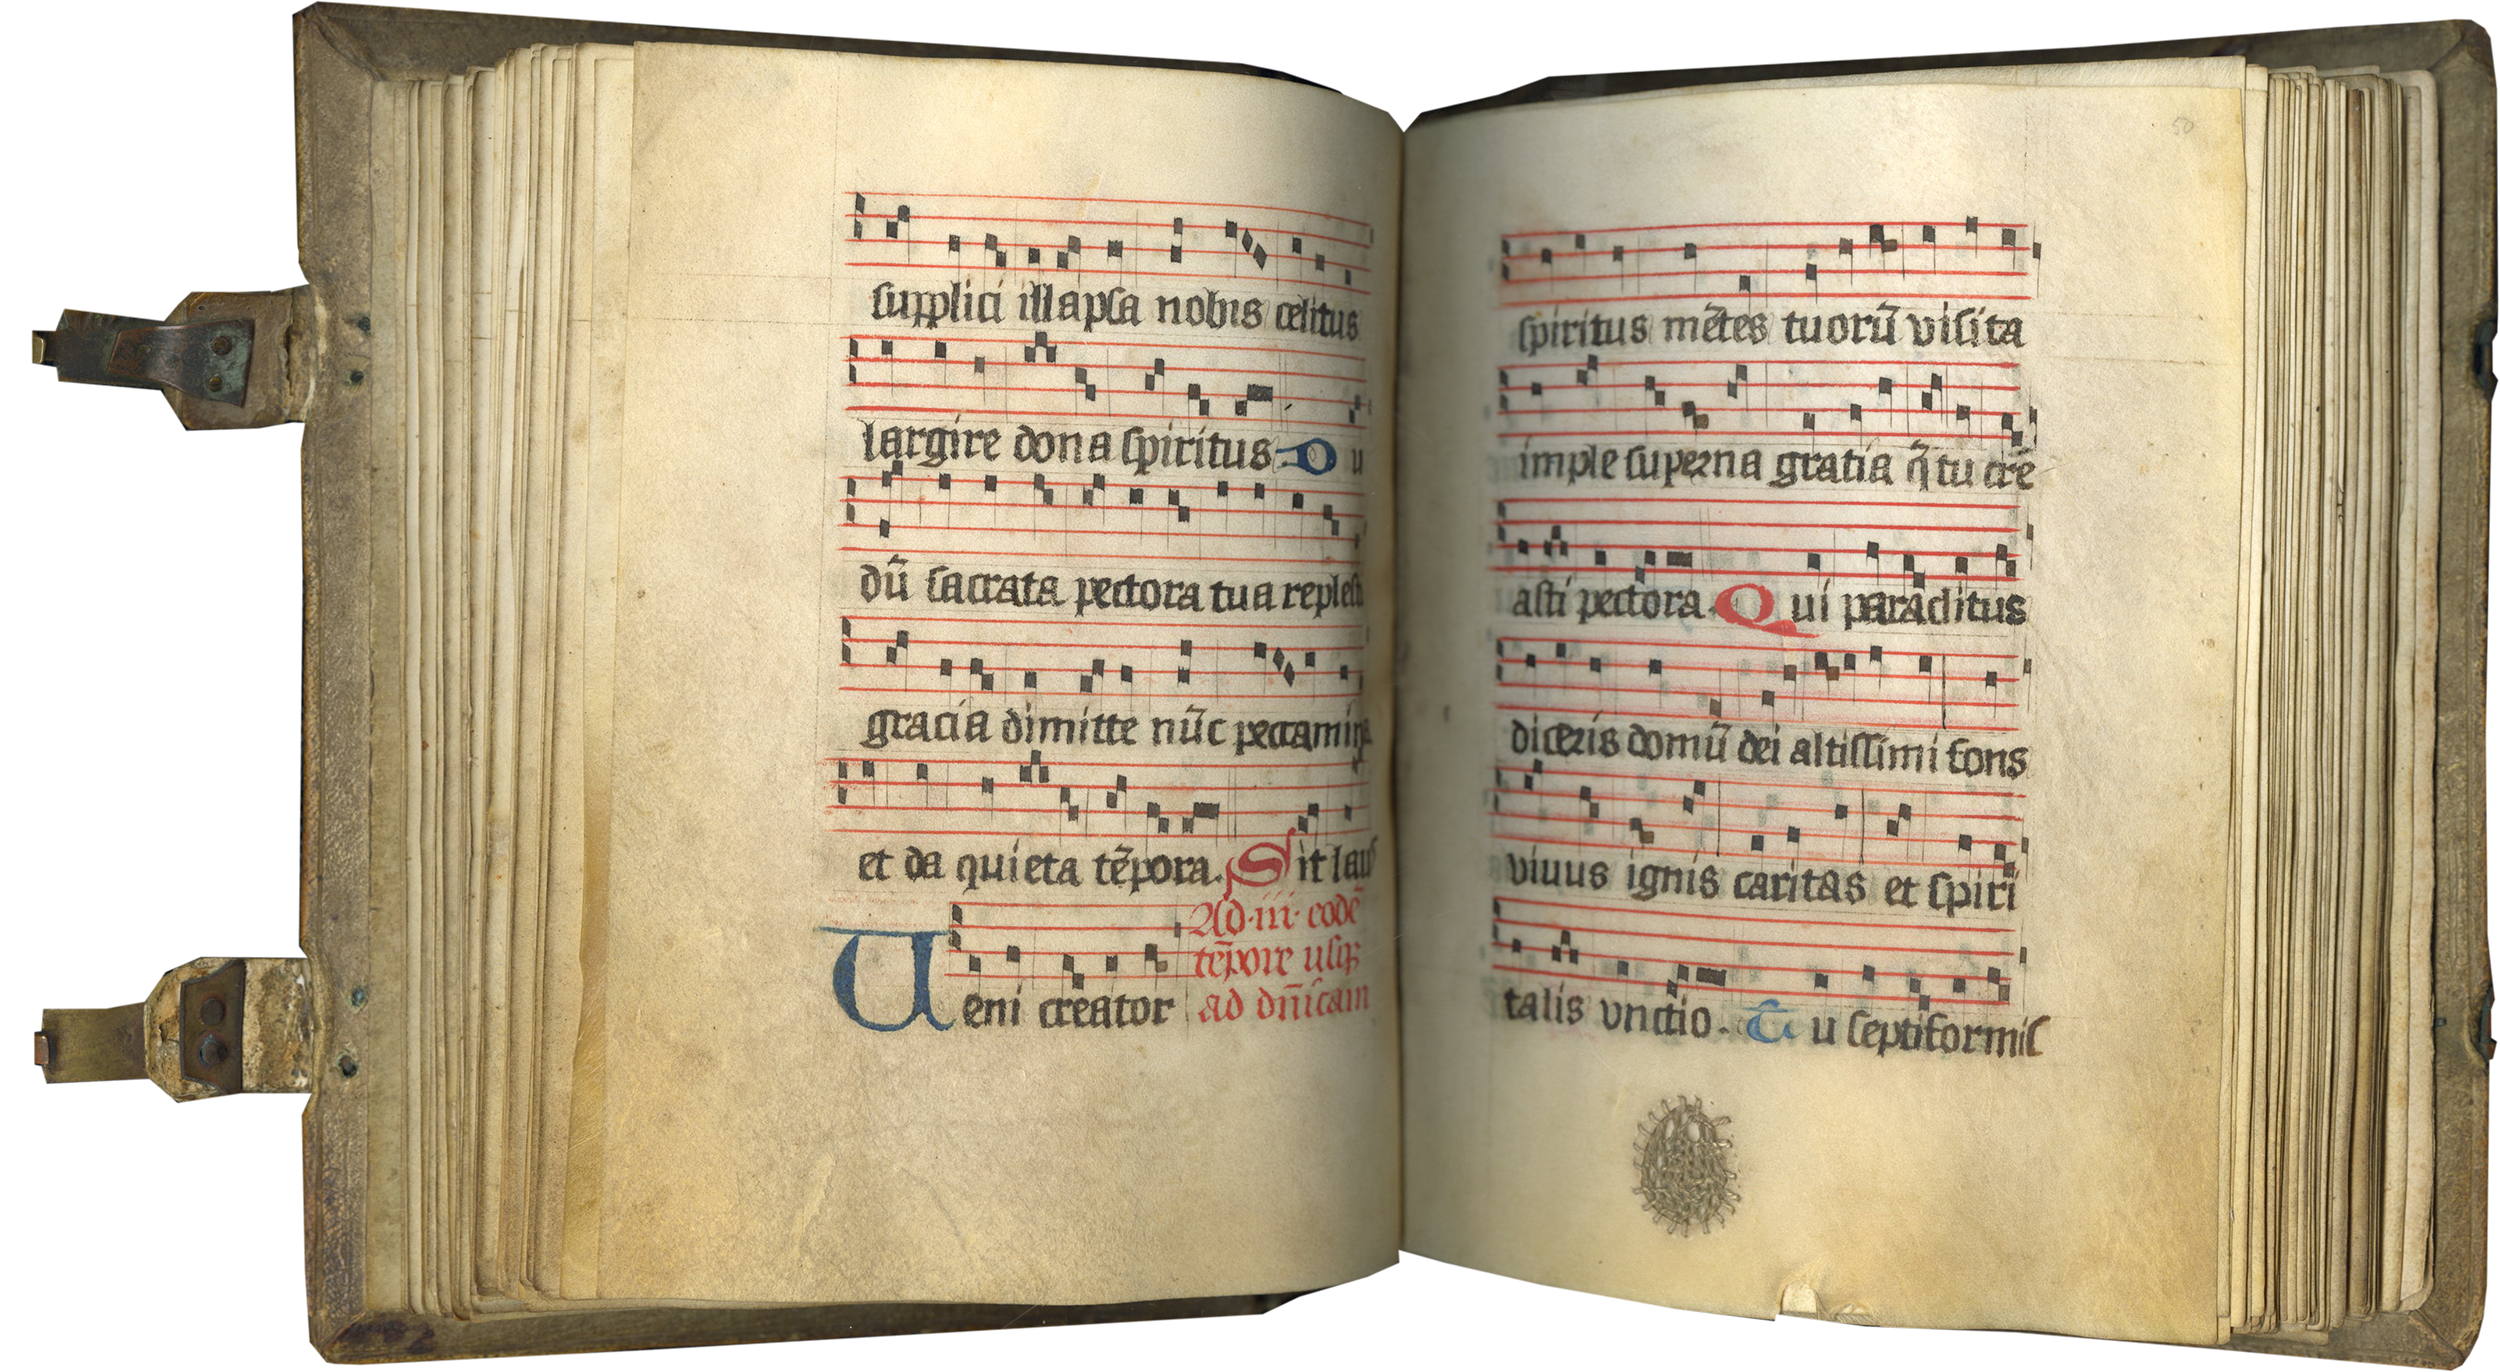 supplici illapsa nobis celitus
largire dona spiritus. Du
dū sacrata pectora tua reples
gracia dimitte nūc peccamina
et da quieta tēpora. Sit laus
Ad .iii. eodē
tēpore usq;
Veni creator ad dn̄icam
50
spiritus mētes tuorū visita
imple superna gratia q̄ tu cre
asti pectora. Qui paraclitus
diceris domū dei altissimi fons
viuus ignis caritas et spiri
talis vnctio. Tu septiformis